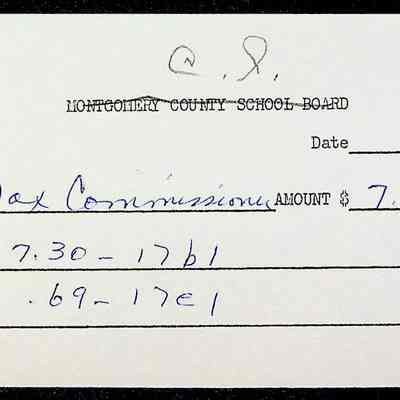 a. S.
MONTGOMERY COUNTY SCHOOL BOARD
Date
Tax Commissioner AMOUNT $ 7.
7.30 - 17b1
.69 - 17e1